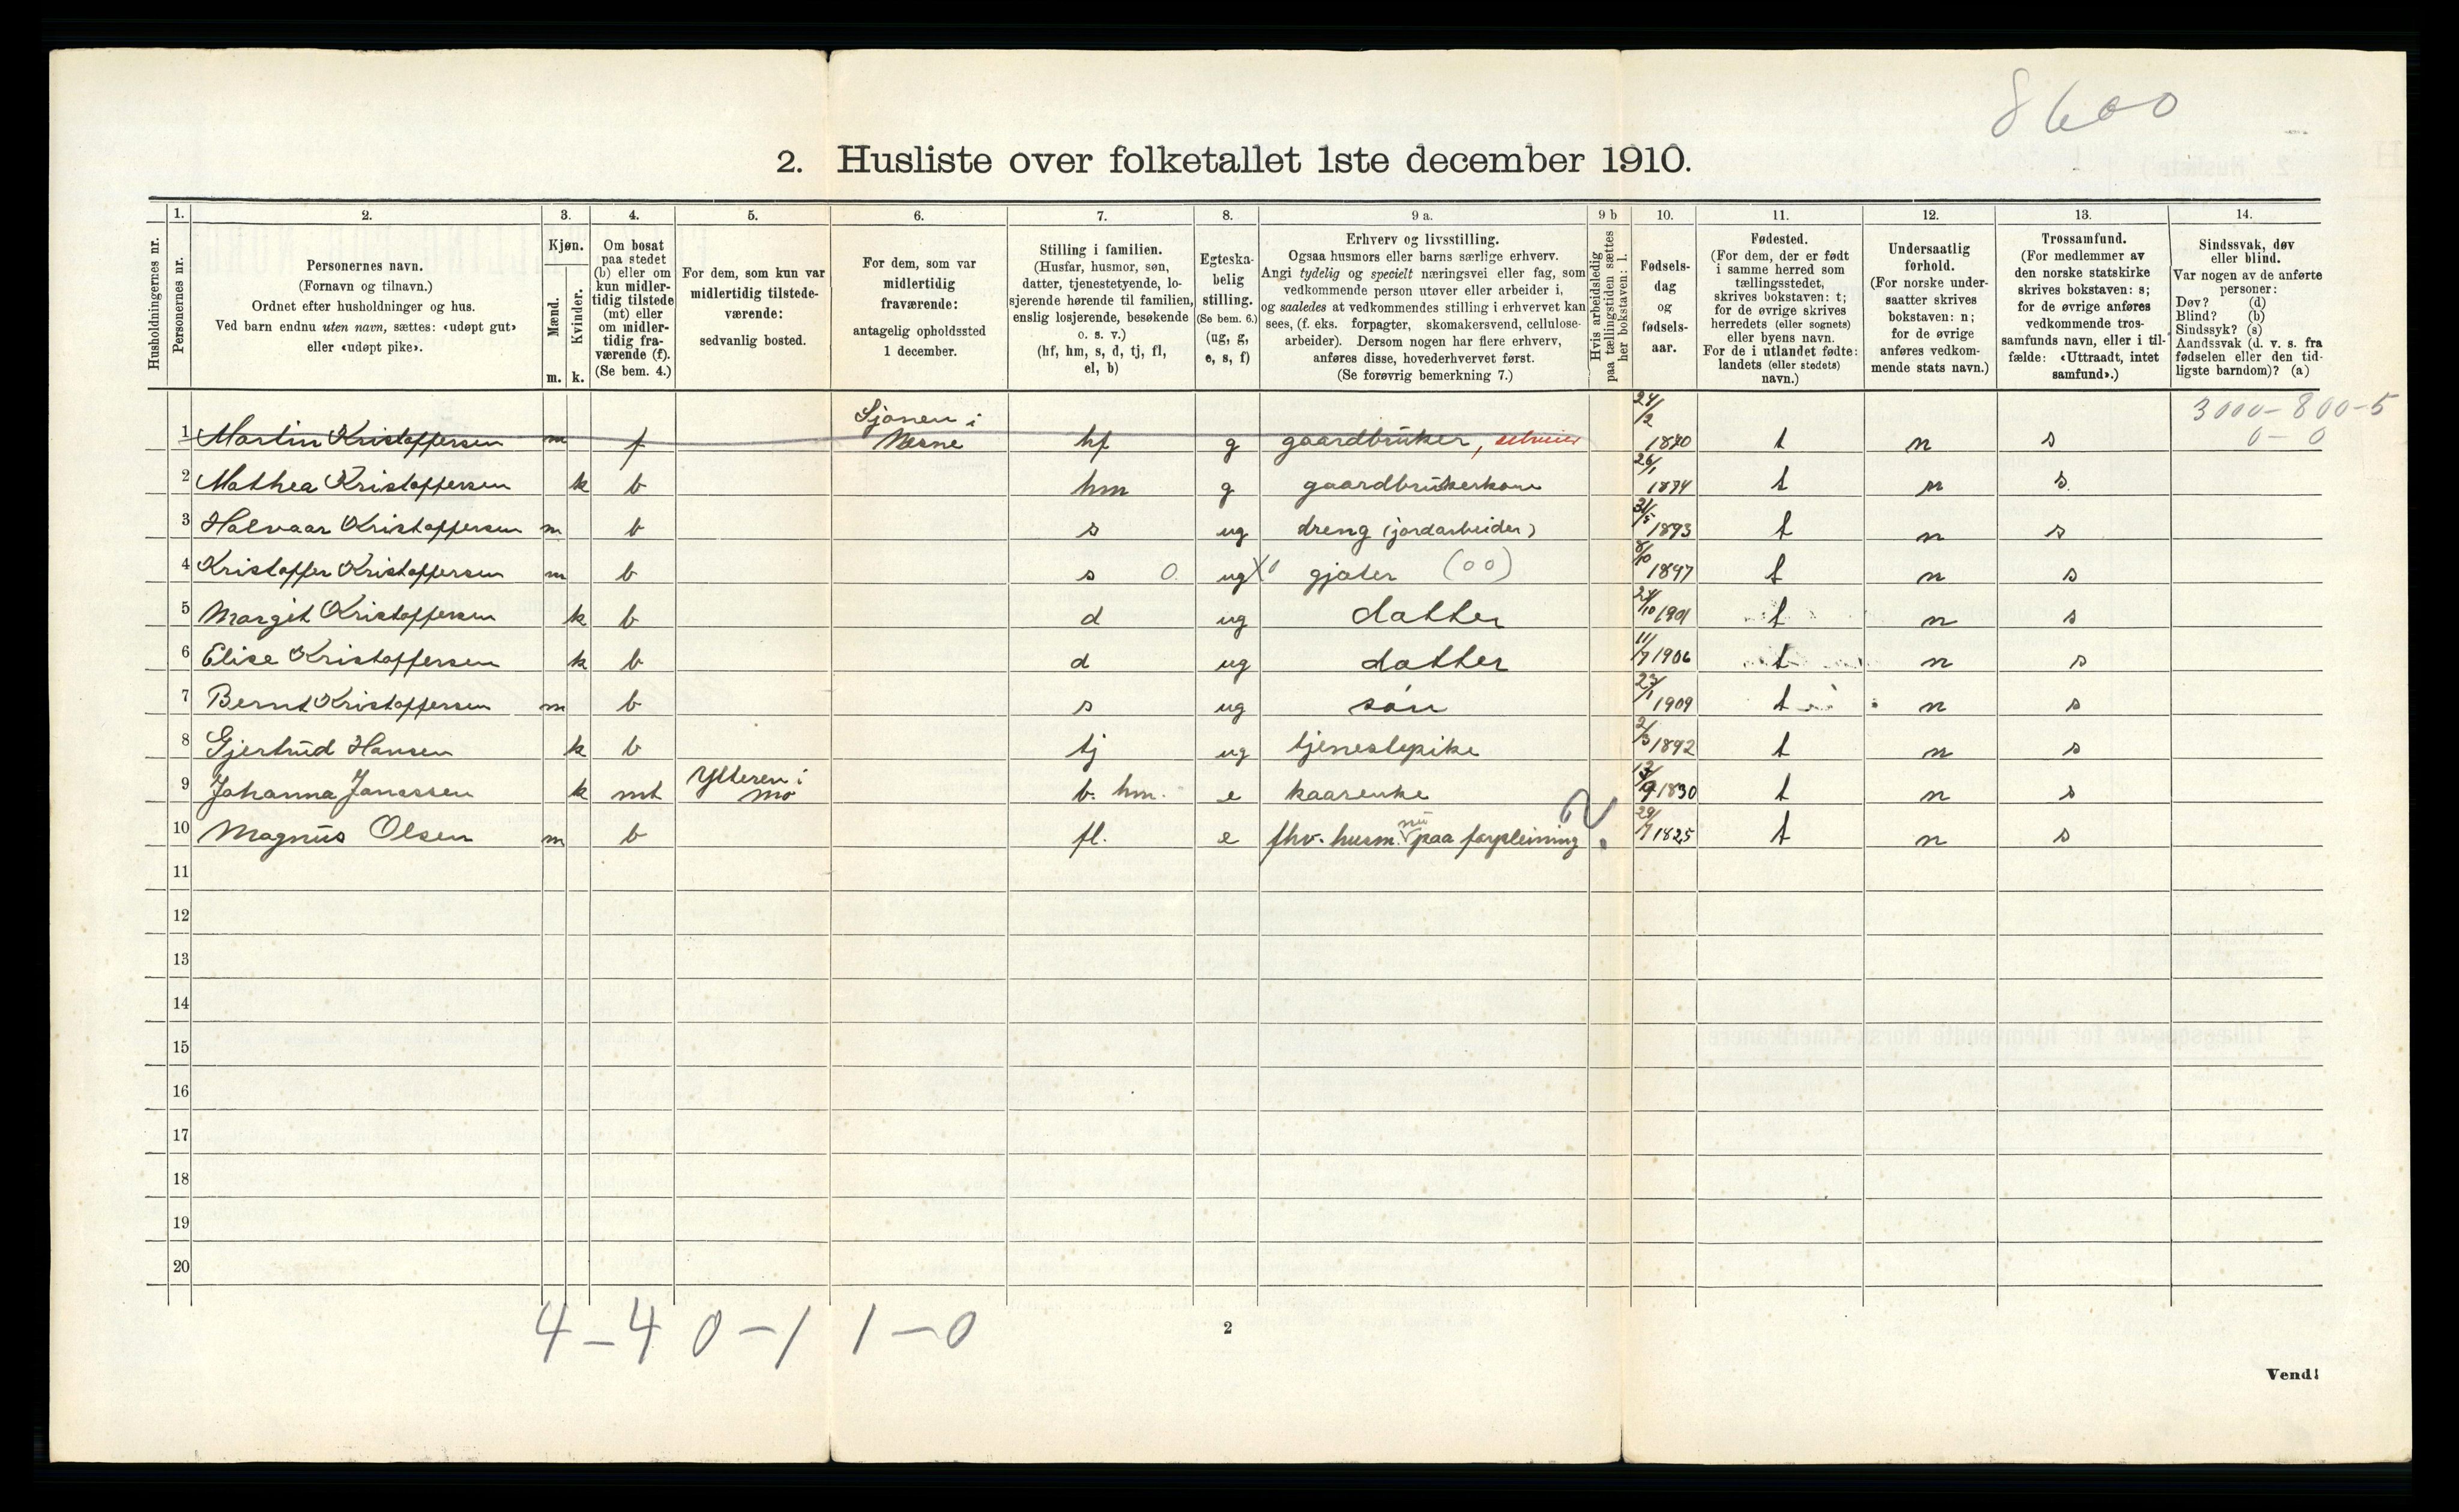 8600
2. Husliste over folketallet 1ste december 1910.
1. 2. 3. 4. 5. 6. 7. 8. 9 a. 9 b 10. 11. 12. 13. 14.
Husholdningernes nr.
Personernes nr.
Personernes navn.
(Fornavn og tilnavn.)
Ordnet efter husholdninger og hus.
Ved barn endnu uten navn, sættes: «udøpt gut»
eller «udøpt pike».
Kjøn.
Mænd.
Kvinder.
m. k.
Om bosat
paa stedet
(b) eller om
kun midler-
tidig tilstede
(mt) eller
om midler-
tidig fra-
værende (f).
(Se bem. 4.)
For dem, som kun var
midlertidig tilstede-
værende:
sedvanlig bosted.
For dem, som var
midlertidig
fraværende:
antagelig opholdssted
1 december.
Stilling i familien.
(Husfar, husmor, søn,
datter, tjenestetyende, lo-
sjerende hørende til familien,
enslig losjerende, besøkende
o. s. v.)
(hf, hm, s, d, tj, fl,
el, b)
Egteska-
belig
stilling.
(Se bem. 6.)
(ug, g,
e, s, f)
Erhverv og livsstilling.
Ogsaa husmors eller barns særlige erhverv.
Angi tydelig og specielt næringsvei eller fag, som
vedkommende person utøver eller arbeider i,
og saaledes at vedkommendes stilling i erhvervet kan
sees, (f. eks. forpagter, skomakersvend, cellulose-
arbeider). Dersom nogen har flere erhverv,
anføres disse, hovederhvervet først.
(Se forøvrig bemerkning 7.)
Hvis arbeidsledig
paa tællingstiden sættes
her bokstaven: l.
Fødsels-
dag
og
fødsels-
aar.
Fødested.
(For dem, der er født
i samme herred som
tællingsstedet,
skrives bokstaven: t;
for de øvrige skrives
herredets (eller sognets)
eller byens navn.
For de i utlandet fødte:
landets (eller stedets)
navn.)
Undersaatlig
forhold.
(For norske under-
saatter skrives
bokstaven: n;
for de øvrige
anføres vedkom-
mende stats navn.)
Trossamfund.
(For medlemmer av
den norske statskirke
skrives bokstaven: s;
for de øvrige anføres
vedkommende tros-
samfunds navn, eller i til-
fælde: «Uttraadt, intet
samfund».)
Sindssvak, døv
eller blind.
Var nogen av de anførte
personer:
Døv? (d)
Blind? (b)
Sindssyk? (s)
Aandssvak (d. v. s. fra
fødselen eller den tid-
ligste barndom)? (a)
3000-800-5
0-0
1 Martin Kristoffersen m f Sjonen i Nesne hf g gaardbruker, selveier 24/2 1870 t n s
2 Mathea Kristoffersen k b hm g gaardbrukerkone 26/1 1874 t n s.
3 Halvaar Kristoffersen m b s ug dreng (jordarbeider) 31/5 1893 t n s
4 Kristoffer Kristoffersen m b s 0 ug X0 gjæter (00) 8/10 1897 t n s
5 Margit Kristoffersen k b d ug datter 24/10 1901 t n s
6 Elise Kristoffersen k b d ug datter 11/7 1906 t n s
7 Bernt Kristoffersen m b s ug søn 23/1 1909 t n s
8 Gjertrud Hansen k b tj ug tjenestepike 2/3 1892 t n s
9 Johanna Jonassen k mt Ytteren i Mo b. hm. e kaarenke 1830 t n s
10 Magnus Olsen m b fl. e fhv. husm. nu paa forpleining ? 29/7 1825 t n s
11
12
13
14
15
16
17
18
19
20
4-4 0-1 1-0
2
Vend!